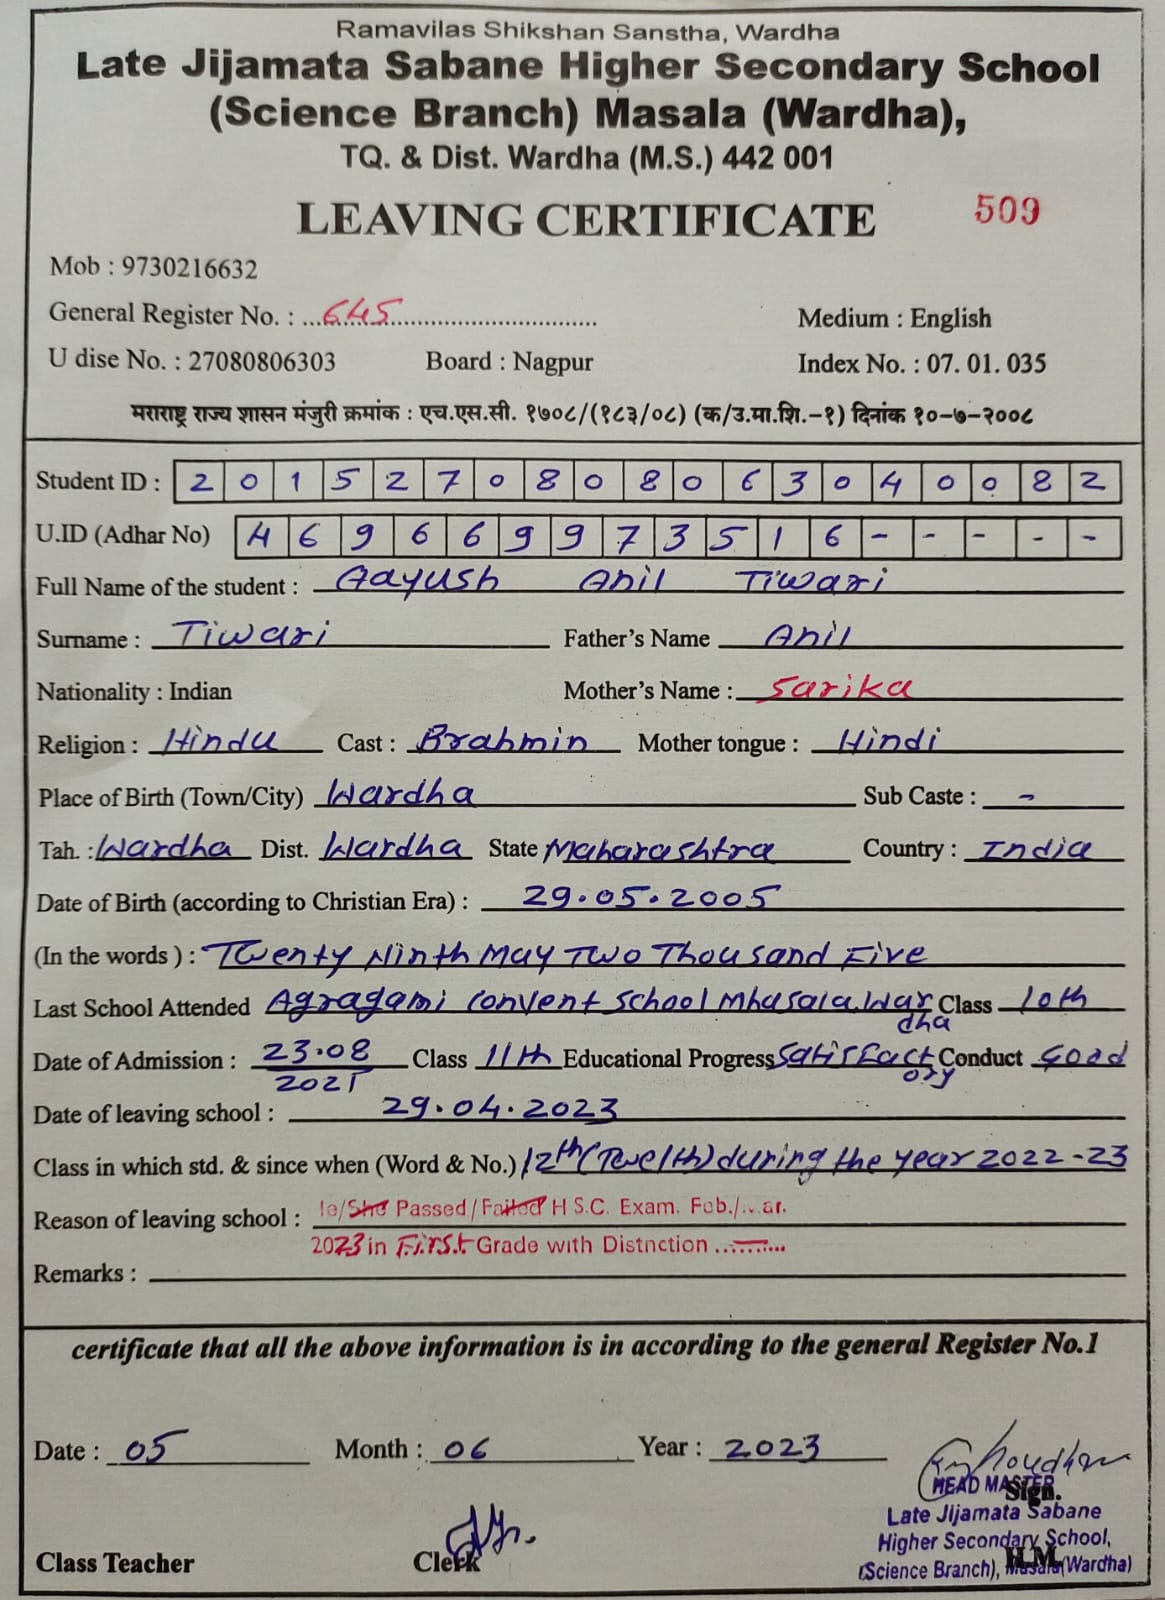 Ramavilas Shikshan Sanstha, Wardha
Late Jijamata Sabane Higher Secondary School
(Science Branch) Masala (Wardha),
TQ. & Dist. Wardha (M.S.) 442 001
LEAVING CERTIFICATE 509
Mob : 9730216632
General Register No. : 645 Medium : English
U dise No. : 27080806303 Board : Nagpur Index No. : 07. 01. 035
मराराष्ट्र राज्य शासन मंजुरी क्रमांक : एच.एस.सी. १७०८/(१८३/०८) (क/उ.मा.शि.-१) दिनांक १०-७-२००८
Student ID : 2 0 1 5 2 7 0 8 0 8 0 6 3 0 4 0 0 8 2
U.ID (Adhar No) 4 6 9 6 6 9 9 7 3 5 1 6 - - - - -
Full Name of the student : Aayush Anil Tiwari
Surname : Tiwari Father's Name Anil
Nationality : Indian Mother's Name : Sarika
Religion : Hindu Cast : Brahmin Mother tongue : Hindi
Place of Birth (Town/City) Wardha Sub Caste : -
Tah. : Wardha Dist. Wardha State Maharashtra Country : India
Date of Birth (according to Christian Era) : 29.05.2005
(In the words ) : Twenty Ninth May Two Thousand Five
Last School Attended Agragami Convent School Mhasala.Wardha Class 10th
Date of Admission : 23.08 2021 Class 11th Educational Progress Satisfactory Conduct Good
Date of leaving school : 29.04.2023
Class in which std. & since when (Word & No.) 12th (Twelth) during the year 2022-23
Reason of leaving school : He/She Passed/Failed H S.C. Exam. Feb./Mar.
2023 in First Grade with Distnction ..........
Remarks :
certificate that all the above information is in according to the general Register No.1
Date : 05 Month : 06 Year : 2023
HEAD MASTER
Sign.
Late Jijamata Sabane
Higher Secondary School,
Class Teacher Clerk H.M.
(Science Branch), Masala(Wardha)